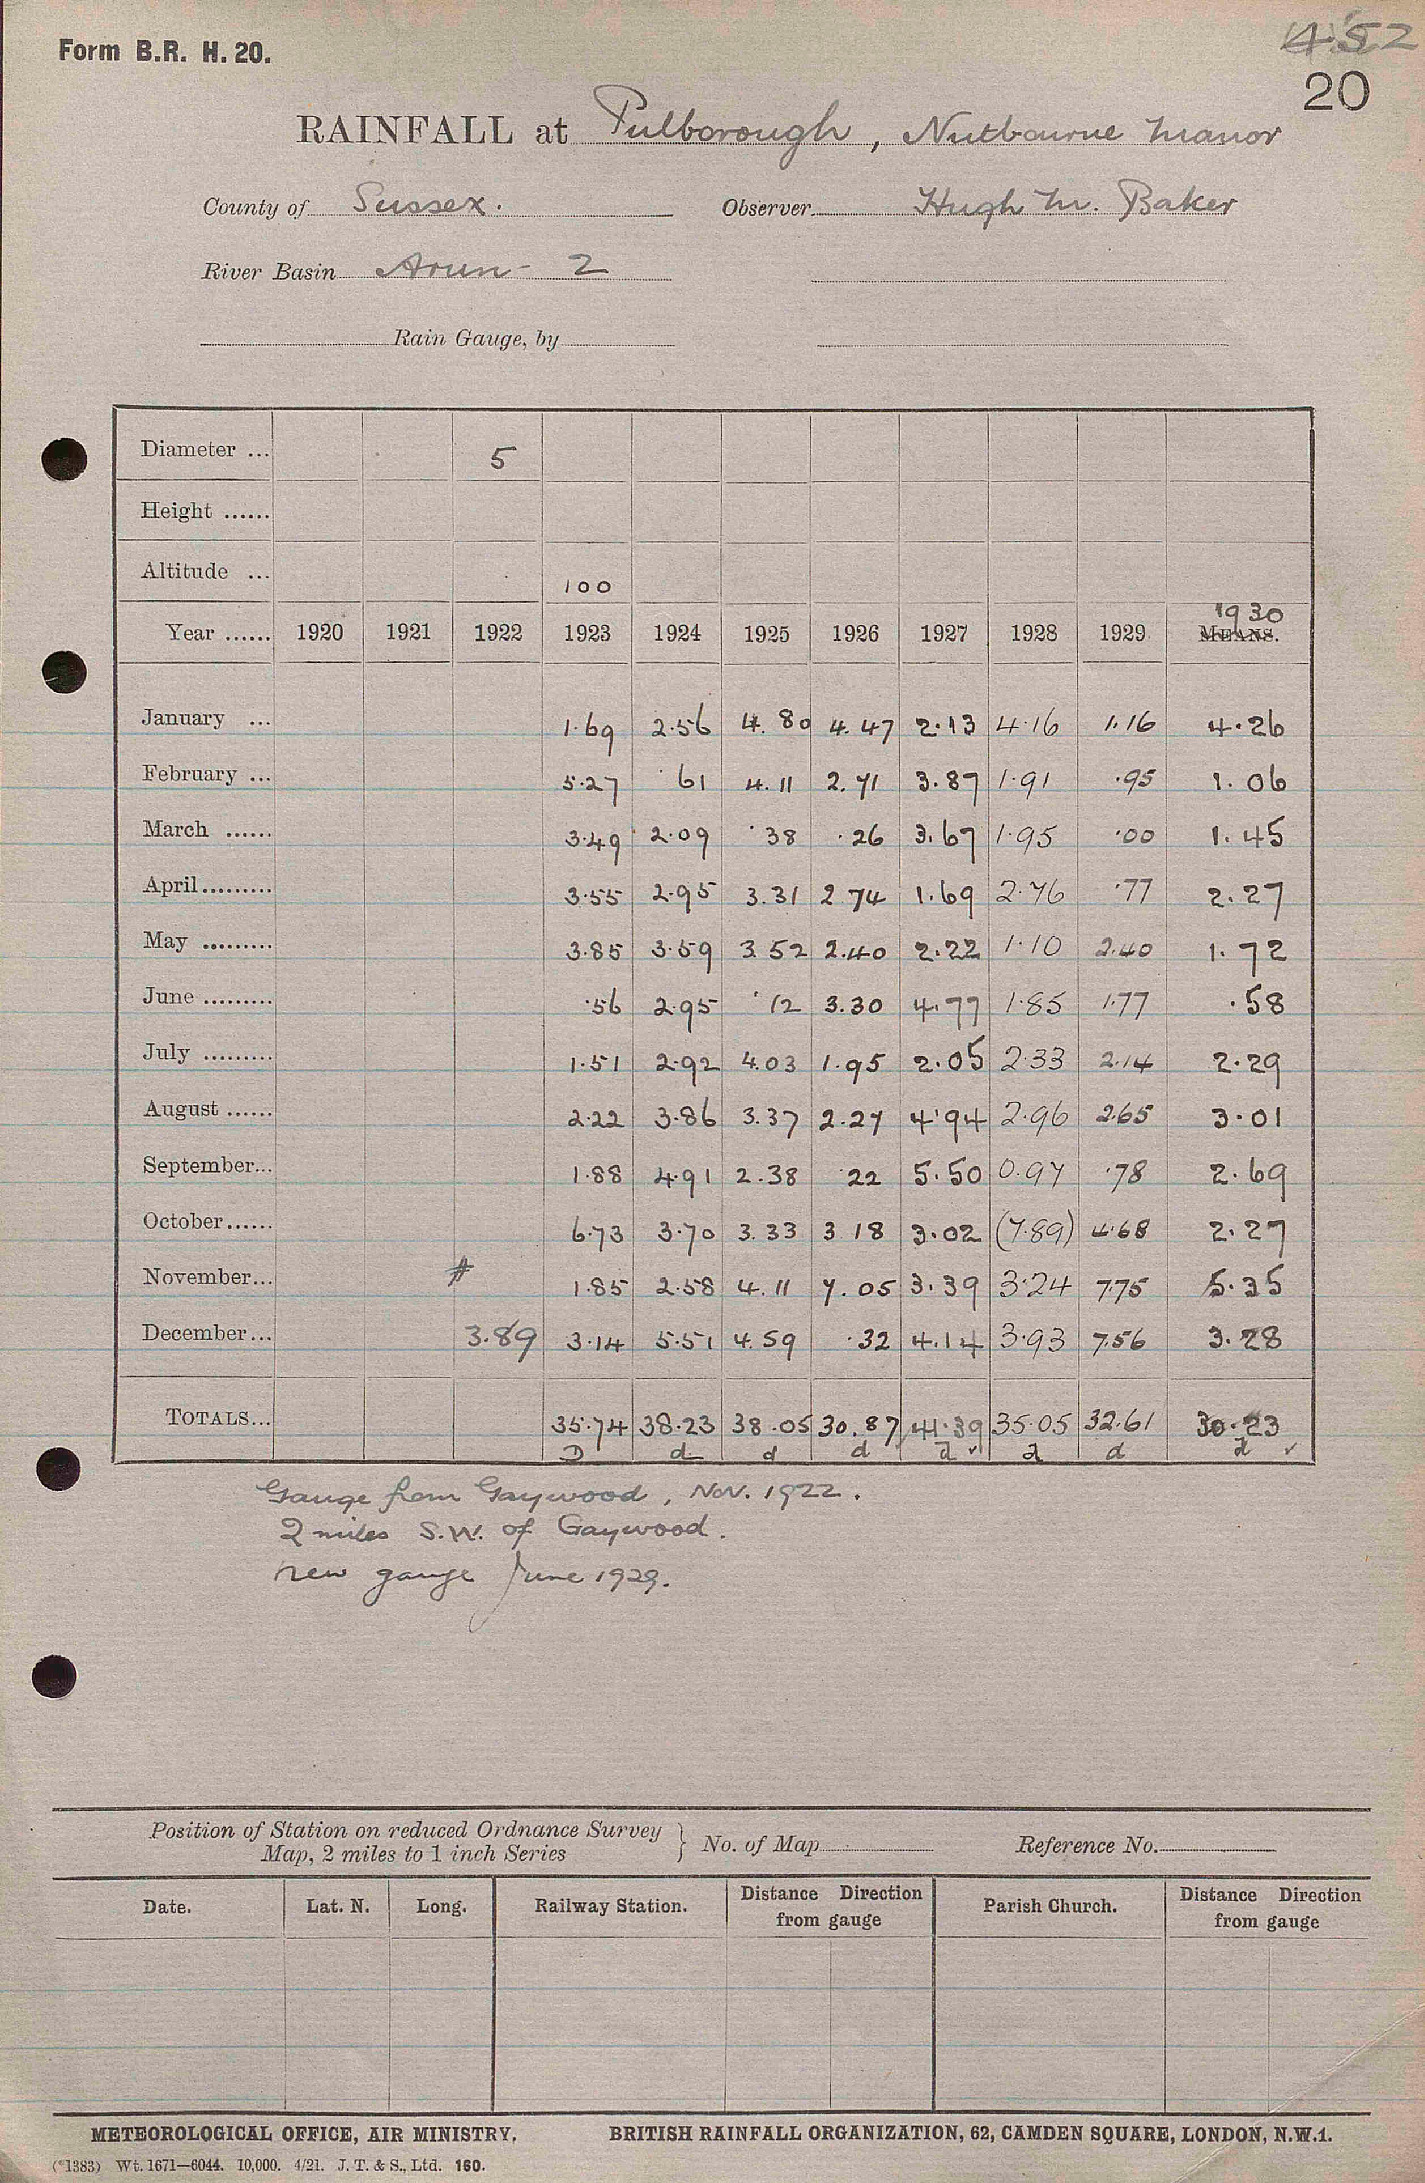 Form B.R. H. 20.
452
20
RAINFALL at Pulborough, Nutbourne Manor
County of Sussex. Observer Hugh M. Baker
River Basin Arun - 2
Rain Gauge, by
Diameter ... 5
Height ......
Altitude ... 100
1930
Year ...... 1920 1921 1922 1923 1924 1925 1926 1927 1928 1929 MEANS.
January ... 1.69 2.56 4.80 4.47 2.13 4.16 1.16 4.26
February ... 5.27 .61 4.11 2.71 3.87 1.91 .95 1.06
March ...... 3.49 2.09 .38 .26 3.67 1.95 .00 1.45
April ......... 3.55 2.95 3.31 2.74 1.69 2.76 .77 2.27
May ......... 3.85 3.59 3.52 2.40 2.22 1.10 2.40 1.72
June ......... .56 2.95 .12 3.30 4.77 1.85 1.77 .58
July ......... 1.51 2.92 4.03 1.95 2.05 2.33 2.14 2.29
August ...... 2.22 3.86 3.37 2.27 4.94 2.96 2.65 3.01
September... 1.88 4.91 2.38 .22 5.50 0.97 .78 2.69
October...... 6.73 3.70 3.33 3.18 3.02 (7.89) 4.68 2.27
November... # 1.85 2.58 4.11 7.05 3.39 3.24 7.75 5.35
December... 3.89 3.14 5.51 4.59 .32 4.14 3.93 7.56 3.28
TOTALS... 35.74 38.23 38.05 30.87 41.39 35.05 32.61 30.23
D d d d d ✓ d d d ✓
Gauge from Gaywood, Nov. 1922.
2 miles S.W. of Gaywood.
New gauge June 1929.
Position of Station on reduced Ordnance Survey
Map, 2 miles to 1 inch Series } No. of Map Reference No.
Date. Lat. N. Long. Railway Station. Distance Direction from gauge Parish Church. Distance Direction from gauge
METEOROLOGICAL OFFICE, AIR MINISTRY. BRITISH RAINFALL ORGANIZATION, 62, CAMDEN SQUARE, LONDON, N.W.1.
(*1383) Wt. 1671—6044. 10,000. 4/21. J. T. & S., Ltd. 160.